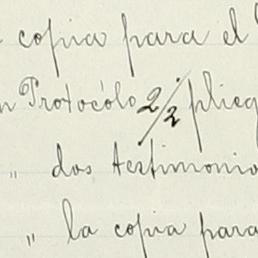 copia para el
n Protocólo 2/2 plieg
" dos testimonio
" la copia para